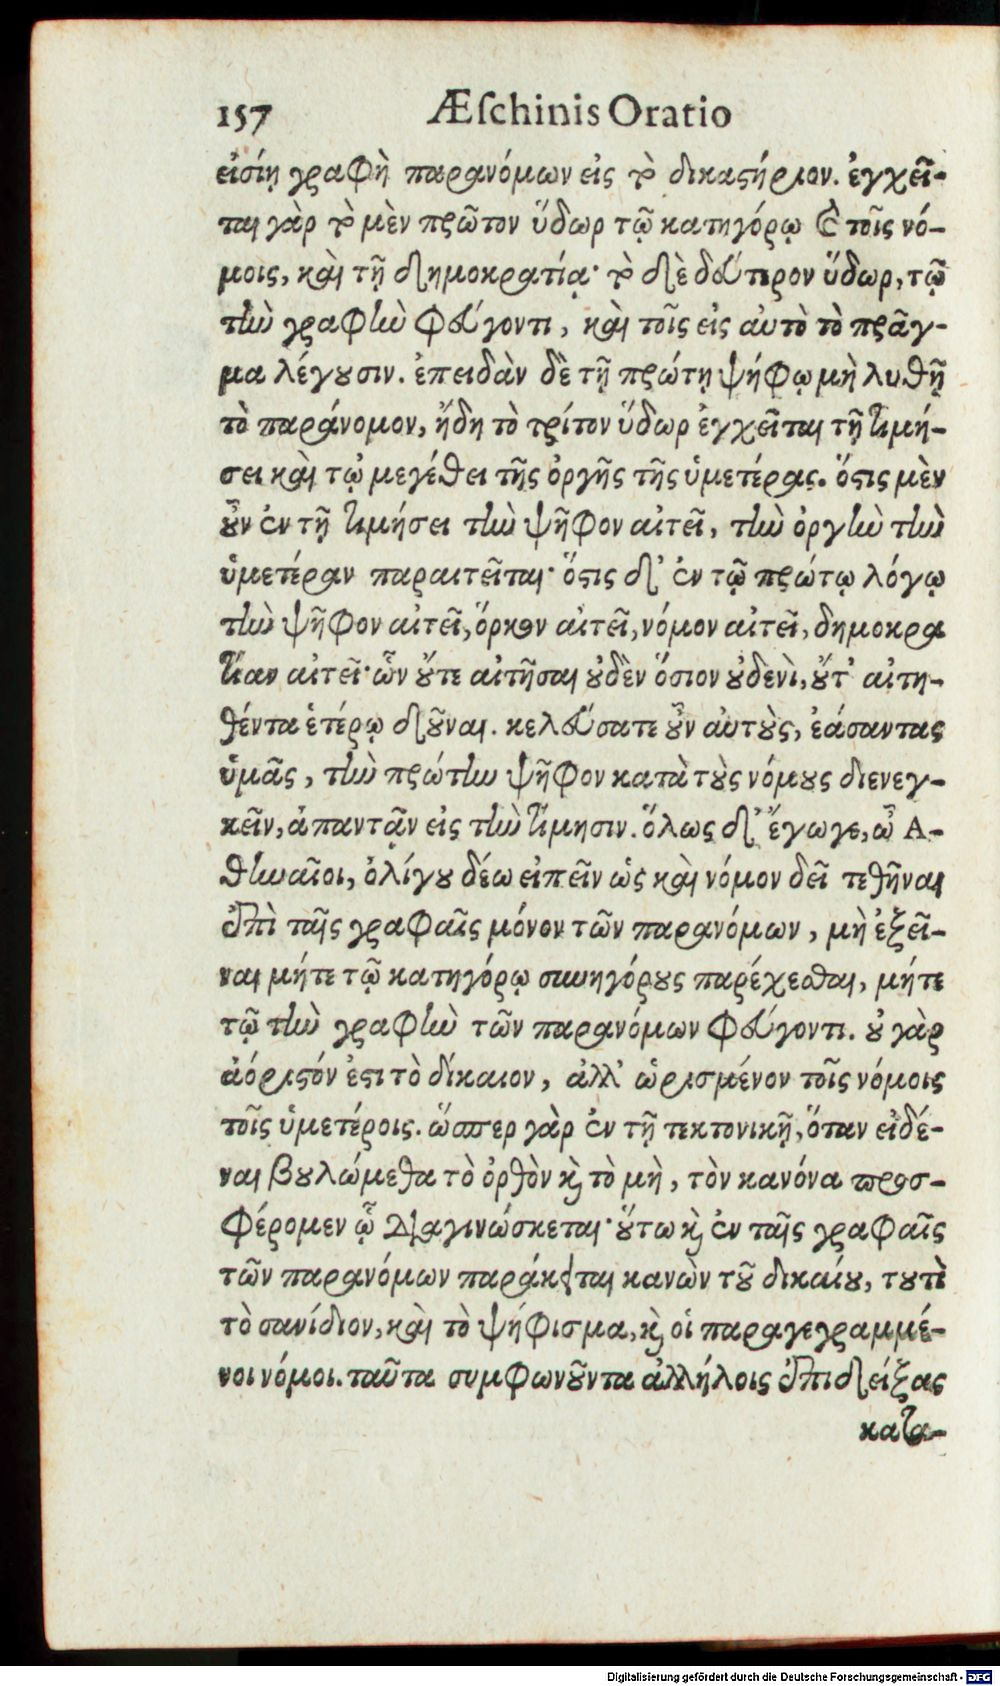 157 Æſchinis Oratio
εἰσίῃ γραφὴ παρανόμων εἰς τὸ δικαςήριον. ἐγχεῖ-
ται γὰρ τὸ μὲν πρῶτον ὕδωρ τῷ κατηγόρῳ καὶ τοῖς νό-
μοις, καὶ τῇ δημοκρατίᾳ· τὸ δὲ δεύτερον ὕδωρ, τῷ
τὴν γραφὴν φεύγοντι, καὶ τοῖς εἰς αὐτὸ τὸ πρᾶγ-
μα λέγουσιν. ἐπειδὰν δὲ τῇ πρώτῃ ψήφῳ μὴ λυθῇ
τὸ παράνομον, ἤδη τὸ τρίτον ὕδωρ ἐγχεῖται τῇ τιμή-
σει καὶ τῷ μεγέθει τῆς ὀργῆς τῆς ὑμετέρας. ὅςις μὲν
οὖν ἐν τῇ τιμήσει τὴν ψῆφον αἰτεῖ, τὴν ὀργὴν τὴν
ὑμετέραν παραιτεῖται· ὅςις δ' ἐν τῷ πρώτῳ λόγῳ
τὴν ψῆφον αἰτεῖ, ὅρκον αἰτεῖ, νόμον αἰτεῖ, δημοκρα
τίαν αἰτεῖ· ὧν οὔτε αἰτῆσαι οὐδὲν ὅσιον οὐδενὶ, οὔτ' αἰτη-
θέντα ἑτέρῳ δοῦναι. κελεύσατε οὖν αὐτοὺς, ἐάσαντας
ὑμᾶς, τὴν πρώτην ψῆφον κατὰ τοὺς νόμους διενεγ-
κεῖν, ἀπαντᾷν εἰς τὴν τίμησιν. ὅλως δ' ἔγωγε, ὦ Α-
θηναῖοι, ὀλίγου δέω εἰπεῖν ὡς καὶ νόμον δεῖ τεθῆναι
ἐπὶ ταῖς γραφαῖς μόνον τῶν παρανόμων, μὴ ἐξεῖ-
ναι μήτε τῷ κατηγόρῳ συνηγόρους παρέχεσθαι, μήτε
τῷ τὴν γραφὴν τῶν παρανόμων φεύγοντι. οὐ γὰρ
ἀόριςόν ἐςι τὸ δίκαιον, ἀλλ' ὡρισμένον τοῖς νόμοις
τοῖς ὑμετέροις. ὥσπερ γὰρ ἐν τῇ τεκτονικῇ, ὅταν εἰδέ-
ναι βουλώμεθα τὸ ὀρθὸν καὶ τὸ μὴ, τὸν κανόνα προσ-
φέρομεν ᾧ διαγινώσκεται· οὕτω καὶ ἐν ταῖς γραφαῖς
τῶν παρανόμων παράκειται κανὼν τοῦ δικαίου, τουτὶ
τὸ σανίδιον, καὶ τὸ ψήφισμα, καὶ οἱ παραγεγραμμέ-
νοι νόμοι. ταῦτα συμφωνοῦντα ἀλλήλοις ἐπιδείξας
κατα-
Digitalisierung gefördert durch die Deutsche Forschungsgemeinschaft - DFG